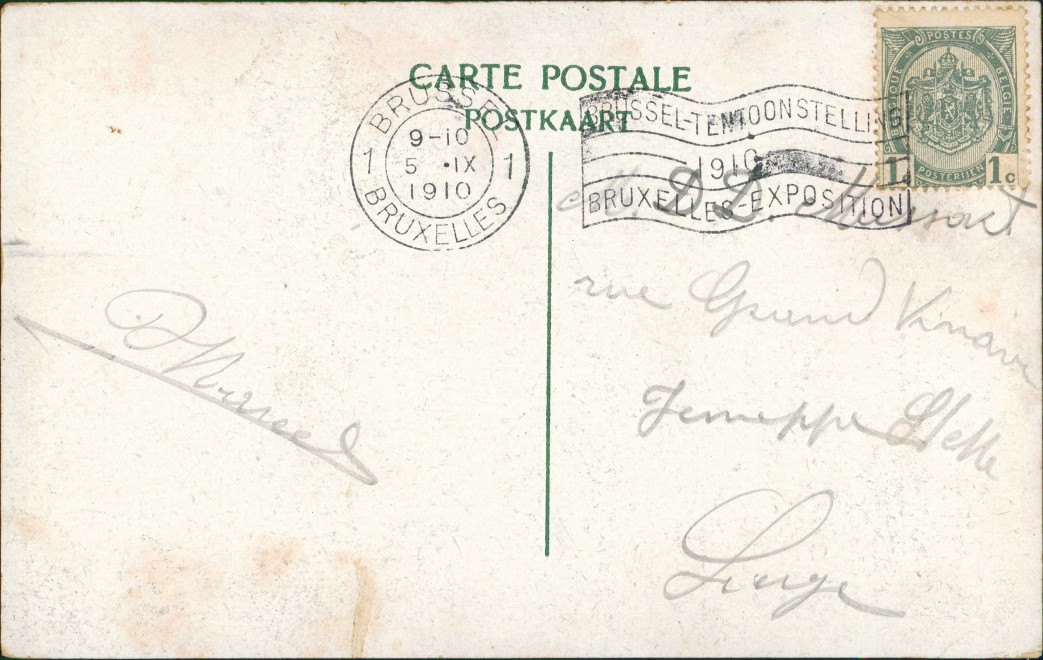 CARTE POSTALE
POSTKAART
BRUSSEL
9-10
1 5 •IX 1
1910
BRUXELLES
BRUSSEL-TENTOONSTELLING
1910
BRUXELLES-EXPOSITION
POSTES
BELGIQUE BELGIE
1 1c
POSTERIJEN
M. D. D. Massart
rue Grand Vinave
Jemeppe s/
Liege